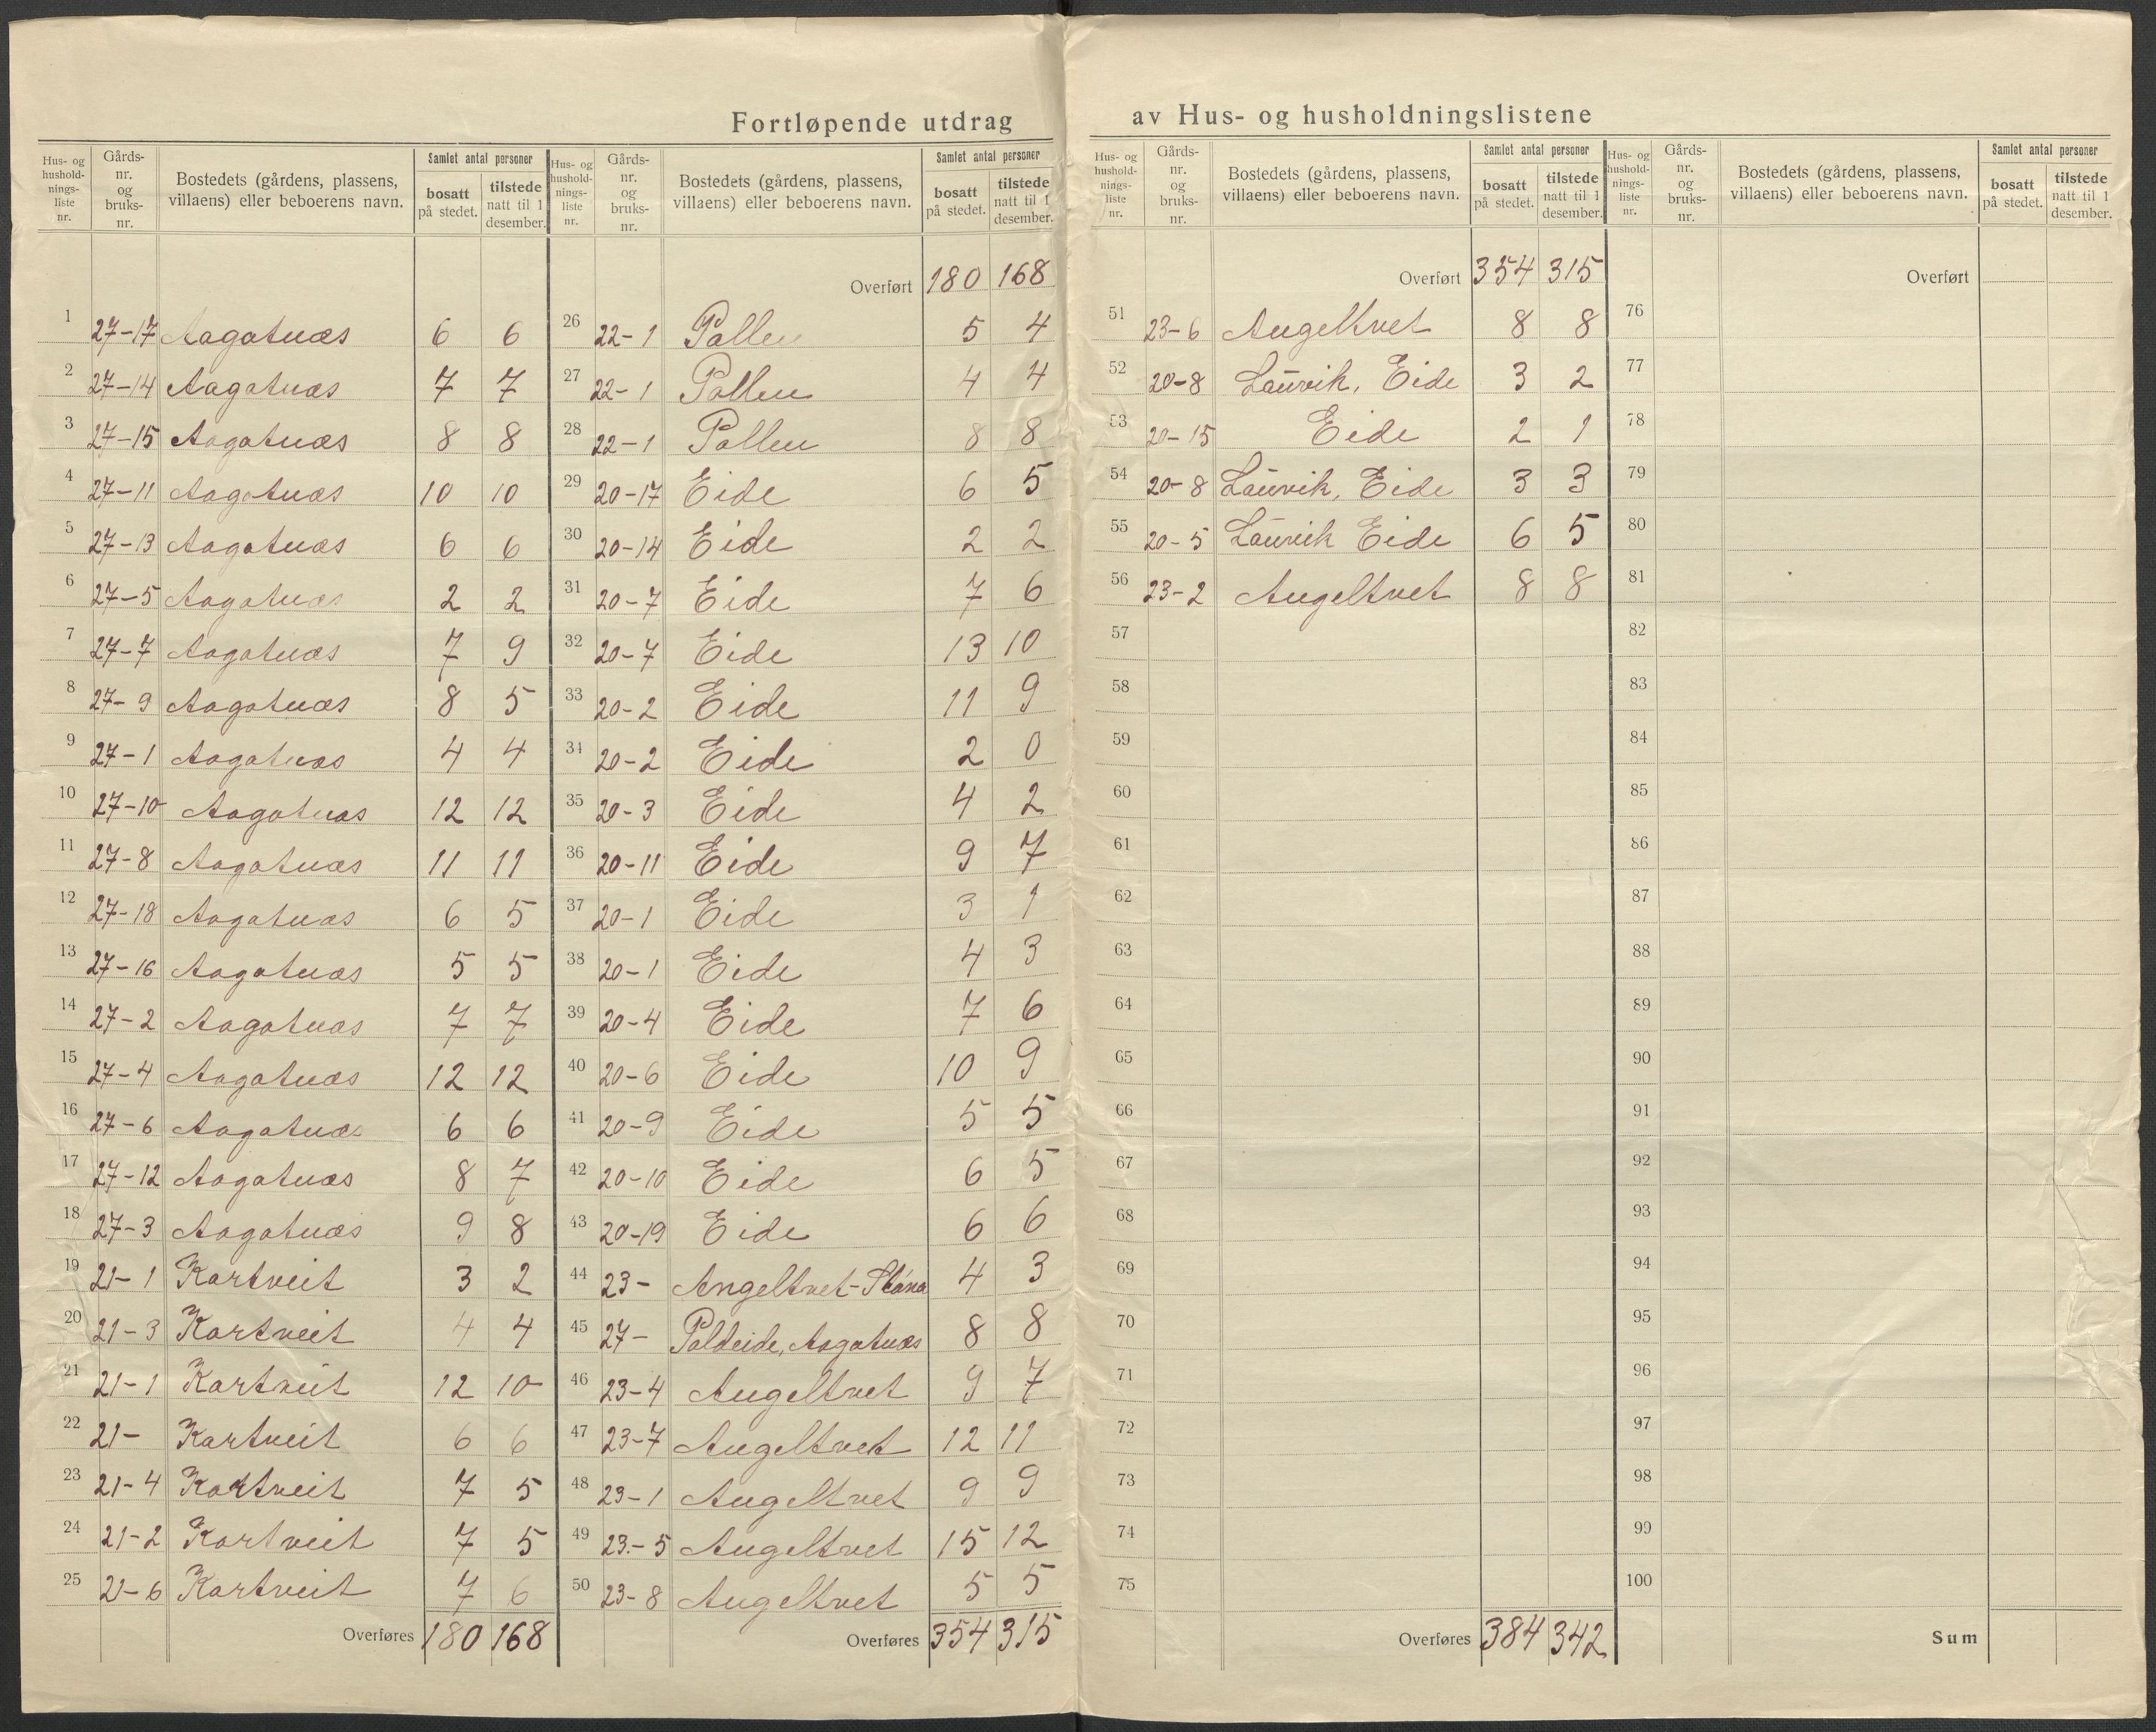 Fortløpende utdrag av Hus- og husholdningslistene
Hus- og hushold- nings- liste nr. | Gårds- nr. og bruks- nr. | Bostedets (gårdens, plassens, villaens) eller beboerens navn. | Samlet antal personer | bosatt på stedet. | tilstede natt til 1 desember.
1 27-17 Aagotnæs 6 6
2 27-14 Aagotnæs 7 7
3 27-15 Aagotnæs 8 8
4 27-11 Aagotnæs 10 10
5 27-13 Aagotnæs 6 6
6 27-5 Aagotnæs 2 2
7 27-7 Aagotnæs 7 9
8 27-9 Aagotnæs 8 5
9 27-1 Aagotnæs 4 4
10 27-10 Aagotnæs 12 12
11 27-8 Aagotnæs 11 11
12 27-18 Aagotnæs 6 5
13 27-16 Aagotnæs 5 5
14 27-2 Aagotnæs 7 7
15 27-4 Aagotnæs 12 12
16 27-6 Aagotnæs 6 6
17 27-12 Aagotnæs 8 7
18 27-3 Aagotnæs 9 8
19 21-1 Kartveit 3 2
20 21-3 Kartveit 4 4
21 21-1 Kartveit 12 10
22 21- Kartveit 6 6
23 21-4 Kartveit 7 5
24 21-2 Kartveit 7 5
25 21-6 Kartveit 7 6
Overføres 180 168
Hus- og hushold- nings- liste nr. | Gårds- nr. og bruks- nr. | Bostedets (gårdens, plassens, villaens) eller beboerens navn. | Samlet antal personer | bosatt på stedet. | tilstede natt til 1 desember.
Overført 180 168
26 22-1 Pollen 5 4
27 22-1 Pollen 4 4
28 22-1 Pollen 8 8
29 20-17 Eide 6 5
30 20-14 Eide 2 2
31 20-7 Eide 7 6
32 20-7 Eide 13 10
33 20-2 Eide 11 9
34 20-2 Eide 2 0
35 20-3 Eide 4 2
36 20-11 Eide 9 7
37 20-1 Eide 3 1
38 20-1 Eide 4 3
39 20-4 Eide 7 6
40 20-6 Eide 10 9
41 20-9 Eide 5 5
42 20-10 Eide 6 5
43 20-19 Eide 6 6
44 23- Angeltvet- 4 3
45 27- Poldeide, Aagotnæs 8 8
46 23-4 Angeltvet 9 7
47 23-7 Angeltvet 12 11
48 23-1 Angeltvet 9 9
49 23-5 Angeltvet 15 12
50 23-8 Angeltvet 5 5
Overføres 354 315
Hus- og hushold- nings- liste nr. | Gårds- nr. og bruks- nr. | Bostedets (gårdens, plassens, villaens) eller beboerens navn. | Samlet antal personer | bosatt på stedet. | tilstede natt til 1 desember.
Overført 354 315
51 23-6 Angeltvet 8 8
52 20-8 Laurvik, Eide 3 2
53 20-15 Eide 2 1
54 20-8 Laurvik, Eide 3 3
55 20-5 Laurvik Eide 6 5
56 23-2 Angeltvet 8 8
57
58
59
60
61
62
63
64
65
66
67
68
69
70
71
72
73
74
75
Overføres 384 342
Hus- og hushold- nings- liste nr. | Gårds- nr. og bruks- nr. | Bostedets (gårdens, plassens, villaens) eller beboerens navn. | Samlet antal personer | bosatt på stedet. | tilstede natt til 1 desember.
Overført
76
77
78
79
80
81
82
83
84
85
86
87
88
89
90
91
92
93
94
95
96
97
98
99
100
Sum